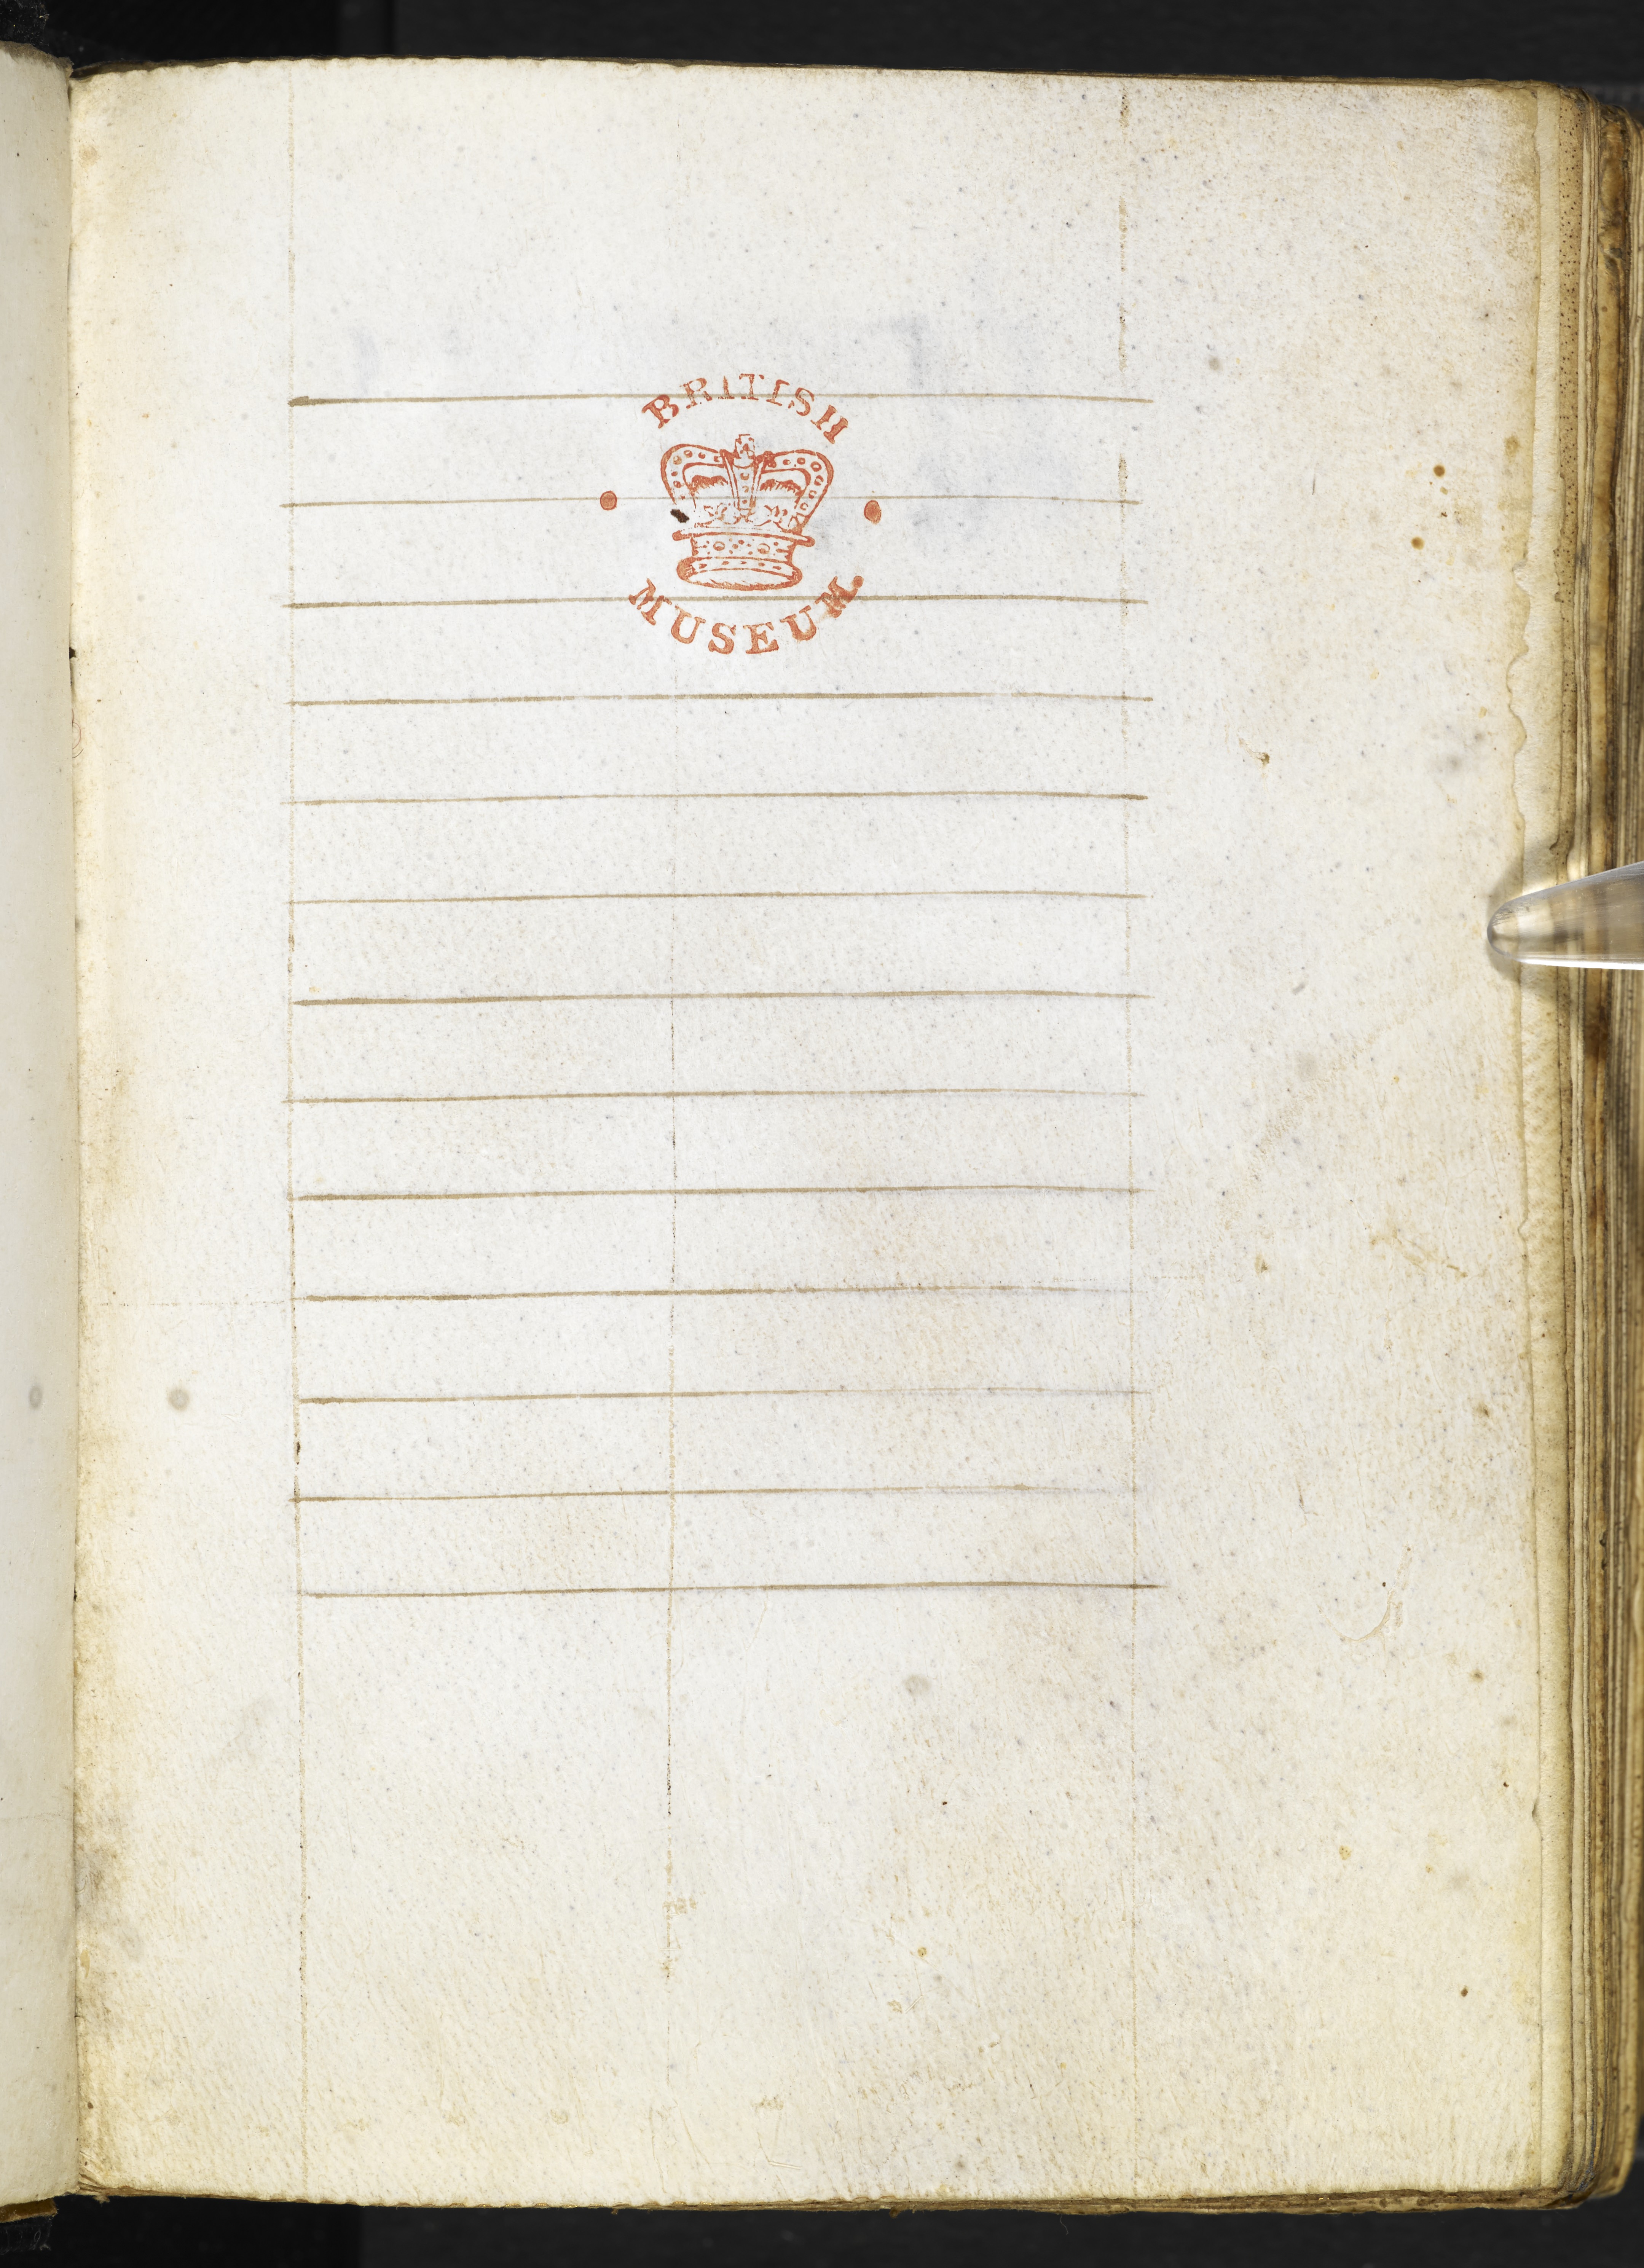 BRITISH
MUSEUM.